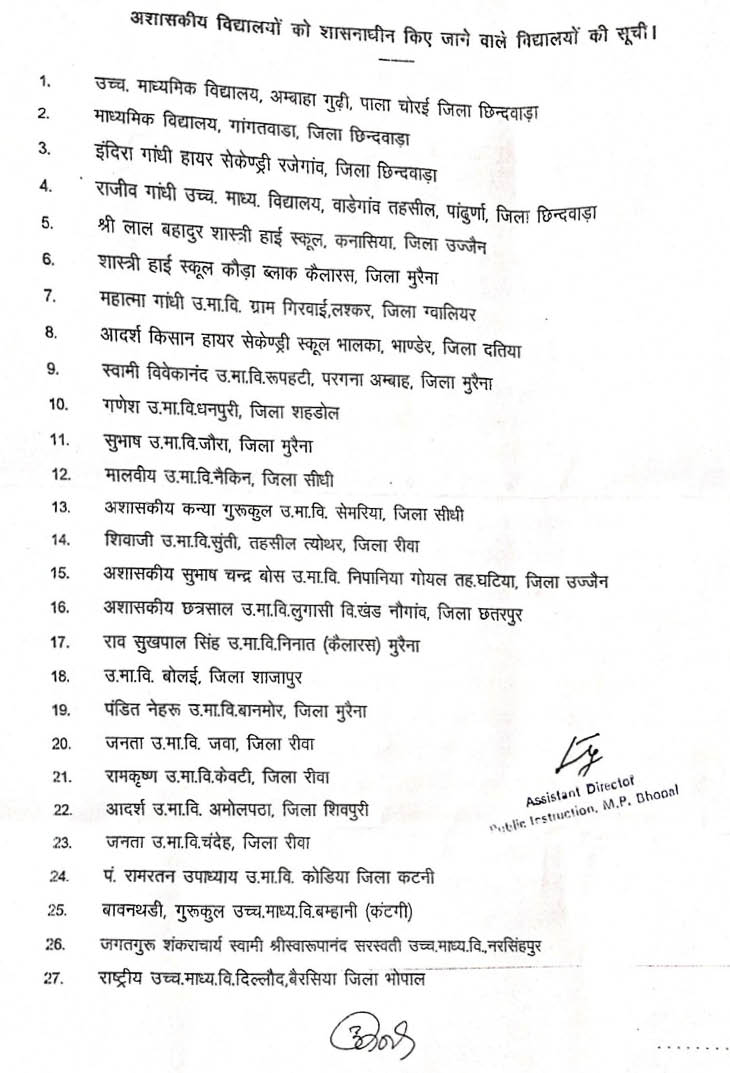 अशासकीय विद्यालयों को शासनाधीन किए जाने वाले विद्यालयों की सूची।
1. उच्च. माध्यमिक विद्यालय, अम्बाहा गुढ़ी, पाला चोरई जिला छिन्दवाड़ा
2. माध्यमिक विद्यालय, गांगतवाडा, जिला छिन्दवाड़ा
3. इंदिरा गांधी हायर सेकेण्ड्री रजेगांव, जिला छिन्दवाड़ा
4. राजीव गांधी उच्च. माध्य. विद्यालय, वाडेगांव तहसील, पांढुर्णा, जिला छिन्दवाड़ा
5. श्री लाल बहादुर शास्त्री हाई स्कूल, कनासिया, जिला उज्जैन
6. शास्त्री हाई स्कूल कौड़ा ब्लाक कैलारस, जिला मुरैना
7. महात्मा गांधी उ.मा.वि. ग्राम गिरवाई,लश्कर, जिला ग्वालियर
8. आदर्श किसान हायर सेकेण्ड्री स्कूल भालका, भाण्डेर, जिला दतिया
9. स्वामी विवेकानंद उ.मा.वि.रूपहटी, परगना अम्बाह, जिला मुरैना
10. गणेश उ.मा.वि.धनपुरी, जिला शहडोल
11. सुभाष उ.मा.वि.जौरा, जिला मुरैना
12. मालवीय उ.मा.वि.नैकिन, जिला सीधी
13. अशासकीय कन्या गुरूकुल उ.मा.वि. सेमरिया, जिला सीधी
14. शिवाजी उ.मा.वि.सुंती, तहसील त्योथर, जिला रीवा
15. अशासकीय सुभाष चन्द्र बोस उ.मा.वि. निपानिया गोयल तह.घटिया, जिला उज्जैन
16. अशासकीय छत्रसाल उ.मा.वि.लुगासी वि.खंड नौगांव, जिला छतरपुर
17. राव सुखपाल सिंह उ.मा.वि.निनात (कैलारस) मुरैना
18. उ.मा.वि. बोलई, जिला शाजापुर
19. पंडित नेहरू उ.मा.वि.बानमोर, जिला मुरैना
20. जनता उ.मा.वि. जवा, जिला रीवा
21. रामकृष्ण उ.मा.वि.केवटी, जिला रीवा
Assistant Director
22. आदर्श उ.मा.वि. अमोलपठा, जिला शिवपुरी
Public Instruction, M.P. Bhopal
23. जनता उ.मा.वि.चंदेह, जिला रीवा
24. पं. रामरतन उपाध्याय उ.मा.वि. कोडिया जिला कटनी
25. बावनथडी, गुरूकुल उच्च.माध्य.वि.बम्हानी (कंटगी)
26. जगतगुरू शंकराचार्य स्वामी श्रीस्वारूपानंद सरस्वती उच्च.माध्य.वि.,नरसिंहपुर
27. राष्ट्रीय उच्च.माध्य.वि.दिल्लौद,बैरसिया जिला भोपाल